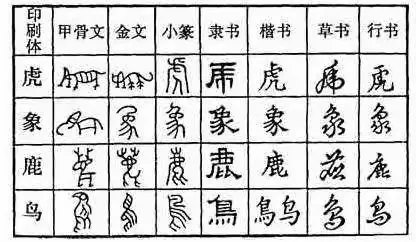 印刷体 甲骨文 金文 小篆 隶书 楷书 草书 行书
虎 虎 虎 虎 虎 虎 虎 虎
象 象 象 象 象 象 象 象
鹿 鹿 鹿 鹿 鹿 鹿 鹿 鹿
鸟 鳥 鳥 鳥 鳥 鳥鸟 鸟 鸟